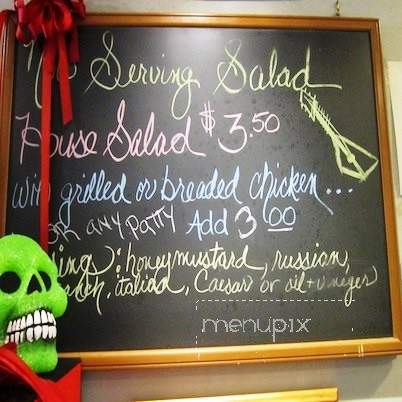 Serving Salad
House Salad $3.50
With grilled or breaded chicken...
OR any PATTY Add 3.00
: honeymustard, russian,
italian, Caesar or oil + vinegar
menupix